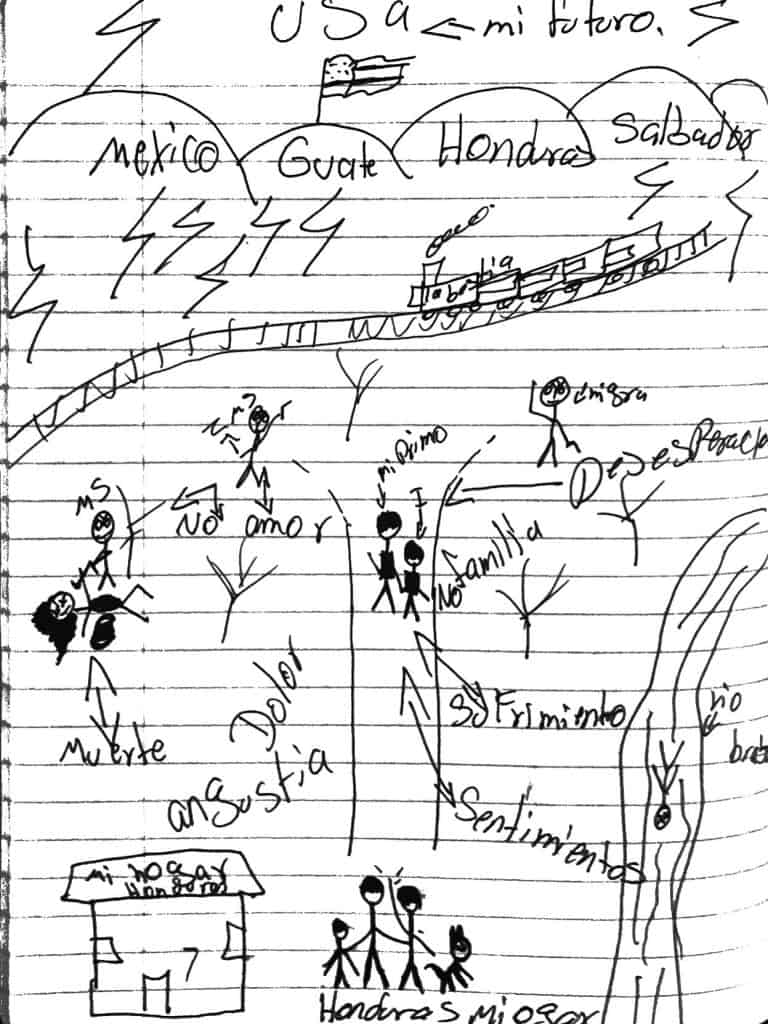 USA ← mi futuro.
Mexico
Guate
Honduras
Salbador
la bestia
migra
Desesperac
MS
mi primo
I
MS
No amor
No familia
Dolor
Sufrimiento
rio
Muerte
angustia
Sentimientos
mi hogar
Honduras
Honduras mi ogar